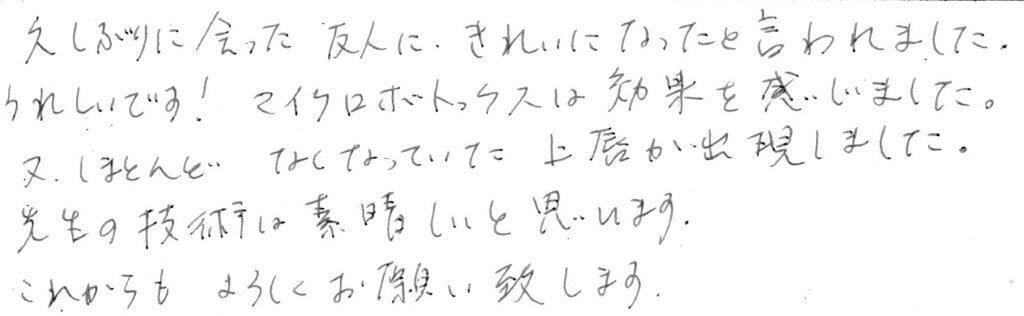 久しぶりに会った友人に、きれいになったと言われました。
うれしいです! マイクロボトックスは効果を感じました。
又、ほとんど なくなっていた 上唇が出現しました。
先生の技術は素晴しいと思います。
これからも よろしくお願い致します。